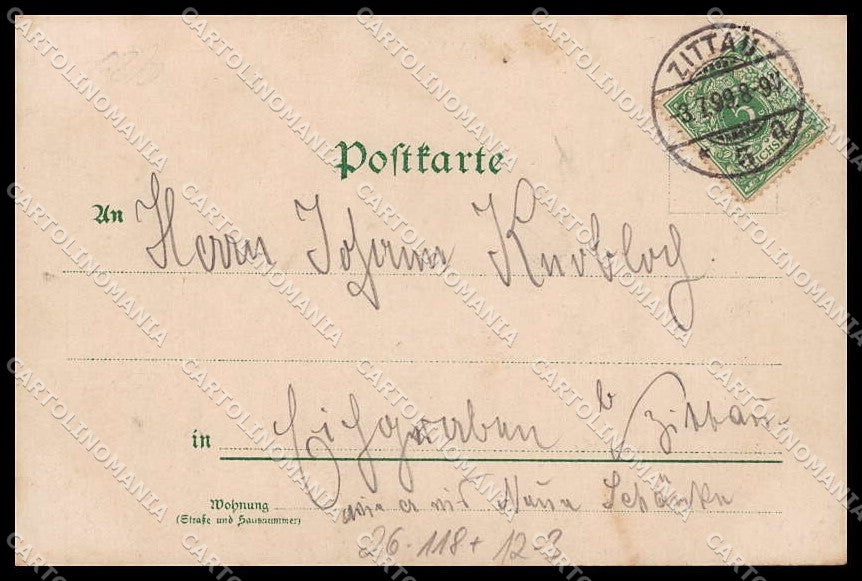 ZITTAU
3.7.99.8-9V.
* 5 a
Postkarte
An Herrn Johann Knobloch.
in Eichgraben b Zittau
Wohnung
(Straße und Hausnummer)
Neue Schänke
26.118+ 12-3
CARTOLINOMANIA